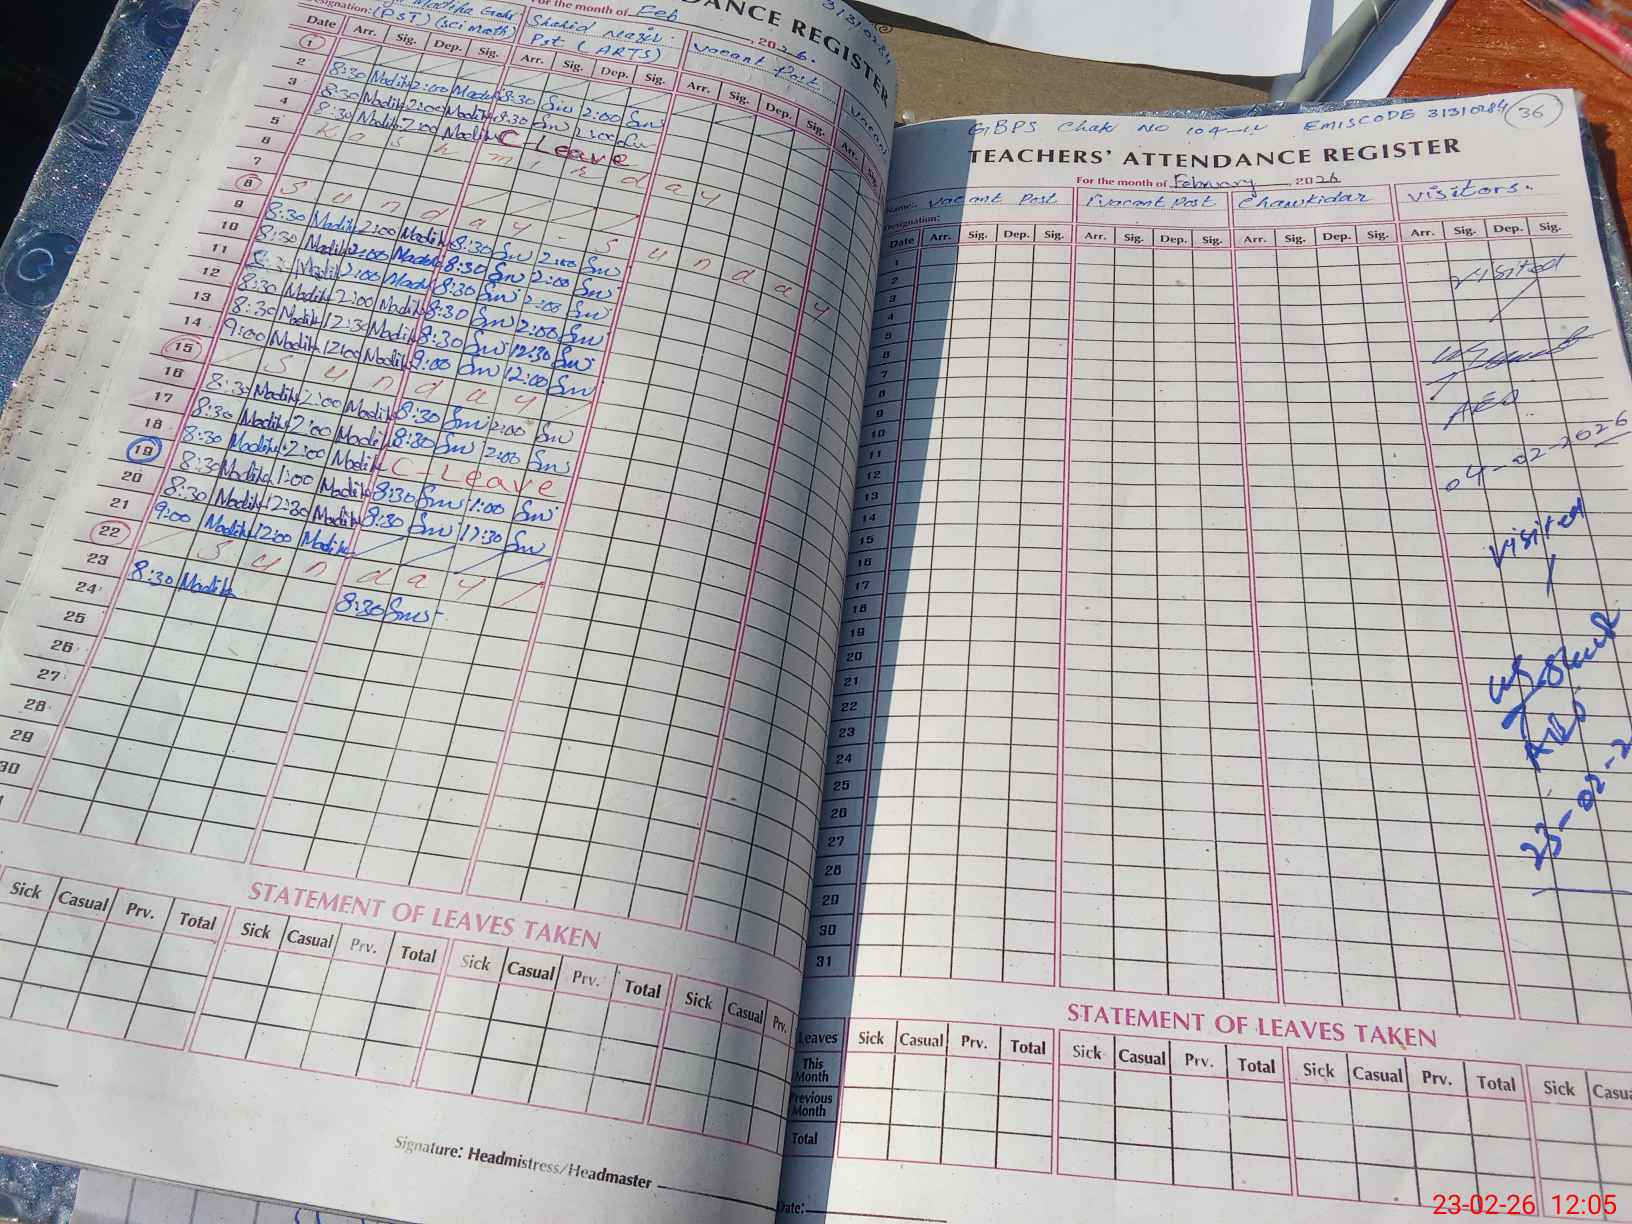 DANCE REGISTER
For the month of Feb, 2026.
31310284
Designation: (PST) (sci math) Shahid Nazir. Vacant Post Vacant
Pst (ARTS)
Date Arr. Sig. Dep. Sig. Arr. Sig. Dep. Sig. Arr. Sig. Dep. Sig. Arr. Sig.
1
2 8:30 Madiha 2:00 Madiha 8:30 Sm 2:00 Sm
3 8:30 Madiha 2:00 Madiha 8:30 Sm 2:00 Sm
4 8:30 Madiha 2:00 Madiha C-Leave
5 Kashmir day
6
7
8 Sunday - Sunday
9 8:30 Madiha 2:00 Madiha 8:30 Sm 2:00 Sm
10 8:30 Madiha 2:00 Madiha 8:30 Sm 2:00 Sm
11 8:30 Madiha 2:00 Madiha 8:30 Sm 2:00 Sm
12 8:30 Madiha 2:00 Madiha 8:30 Sm 2:00 Sm
13 8:30 Madiha 12:30 Madiha 8:30 Sm 12:30 Sm
14 9:00 Madiha 12:00 Madiha 9:00 Sm 12:00 Sm
15 Sunday
16 8:30 Madiha 2:00 Madiha 8:30 Sm 2:00 Sm
17 8:30 Madiha 2:00 Madiha 8:30 Sm 2:00 Sm
18 8:30 Madiha 2:00 Madiha C-Leave
19 8:30 Madiha 1:00 Madiha 8:30 Sm 1:00 Sm
20 8:30 Madiha 12:30 Madiha 8:30 Sm 12:30 Sm
21 9:00 Madiha 12:00 Madiha
22 Sunday
23 8:30 Madiha 8:30 Sm
24
25
26
27
28
29
30
STATEMENT OF LEAVES TAKEN
Sick Casual Prv. Total Sick Casual Prv. Total Sick Casual Prv. Total Sick Casual Prv.
Signature: Headmistress/Headmaster
GBPS Chak NO EMISCODE 31310284 36
TEACHERS' ATTENDANCE REGISTER
For the month of February, 2026
Name: Vacant Post Vacant Post Chawkidar Visitors.
Designation:
Date Arr. Sig. Dep. Sig. Arr. Sig. Dep. Sig. Arr. Sig. Dep. Sig. Arr. Sig. Dep. Sig.
1
2
3
4
5
6
7
8
9
10
11
12
13
14
15
16
17
18
19
20
21
22
23
24
25
26
27
28
29
30
31
Visited
AEO
04-02-2026
Visited
AEO
23-02-2
STATEMENT OF LEAVES TAKEN
Leaves Sick Casual Prv. Total Sick Casual Prv. Total Sick Casual Prv. Total Sick Casu
This Month
Previous Month
Total
Date:
23-02-26 12:05